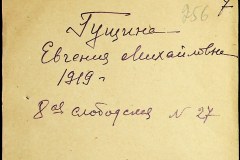 256
7
Гущина
Евгения Михайловна
1919 г
8ая слободская N 27